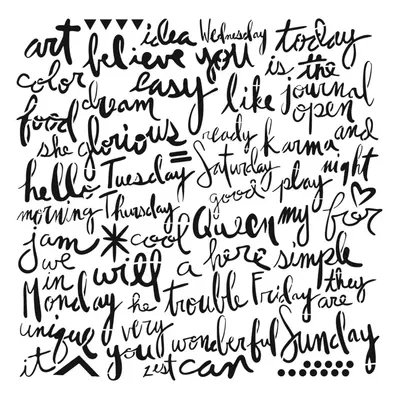 art idea Wednesday today
believe you is the
color dream easy like journal
food open
she glorious ready karma and
hello Tuesday Saturday night
good play
morning Thursday for
jam cool Queen my
we will a here simple
in they
Monday he trouble Friday are
unique very wonderful Sunday
it you zest can